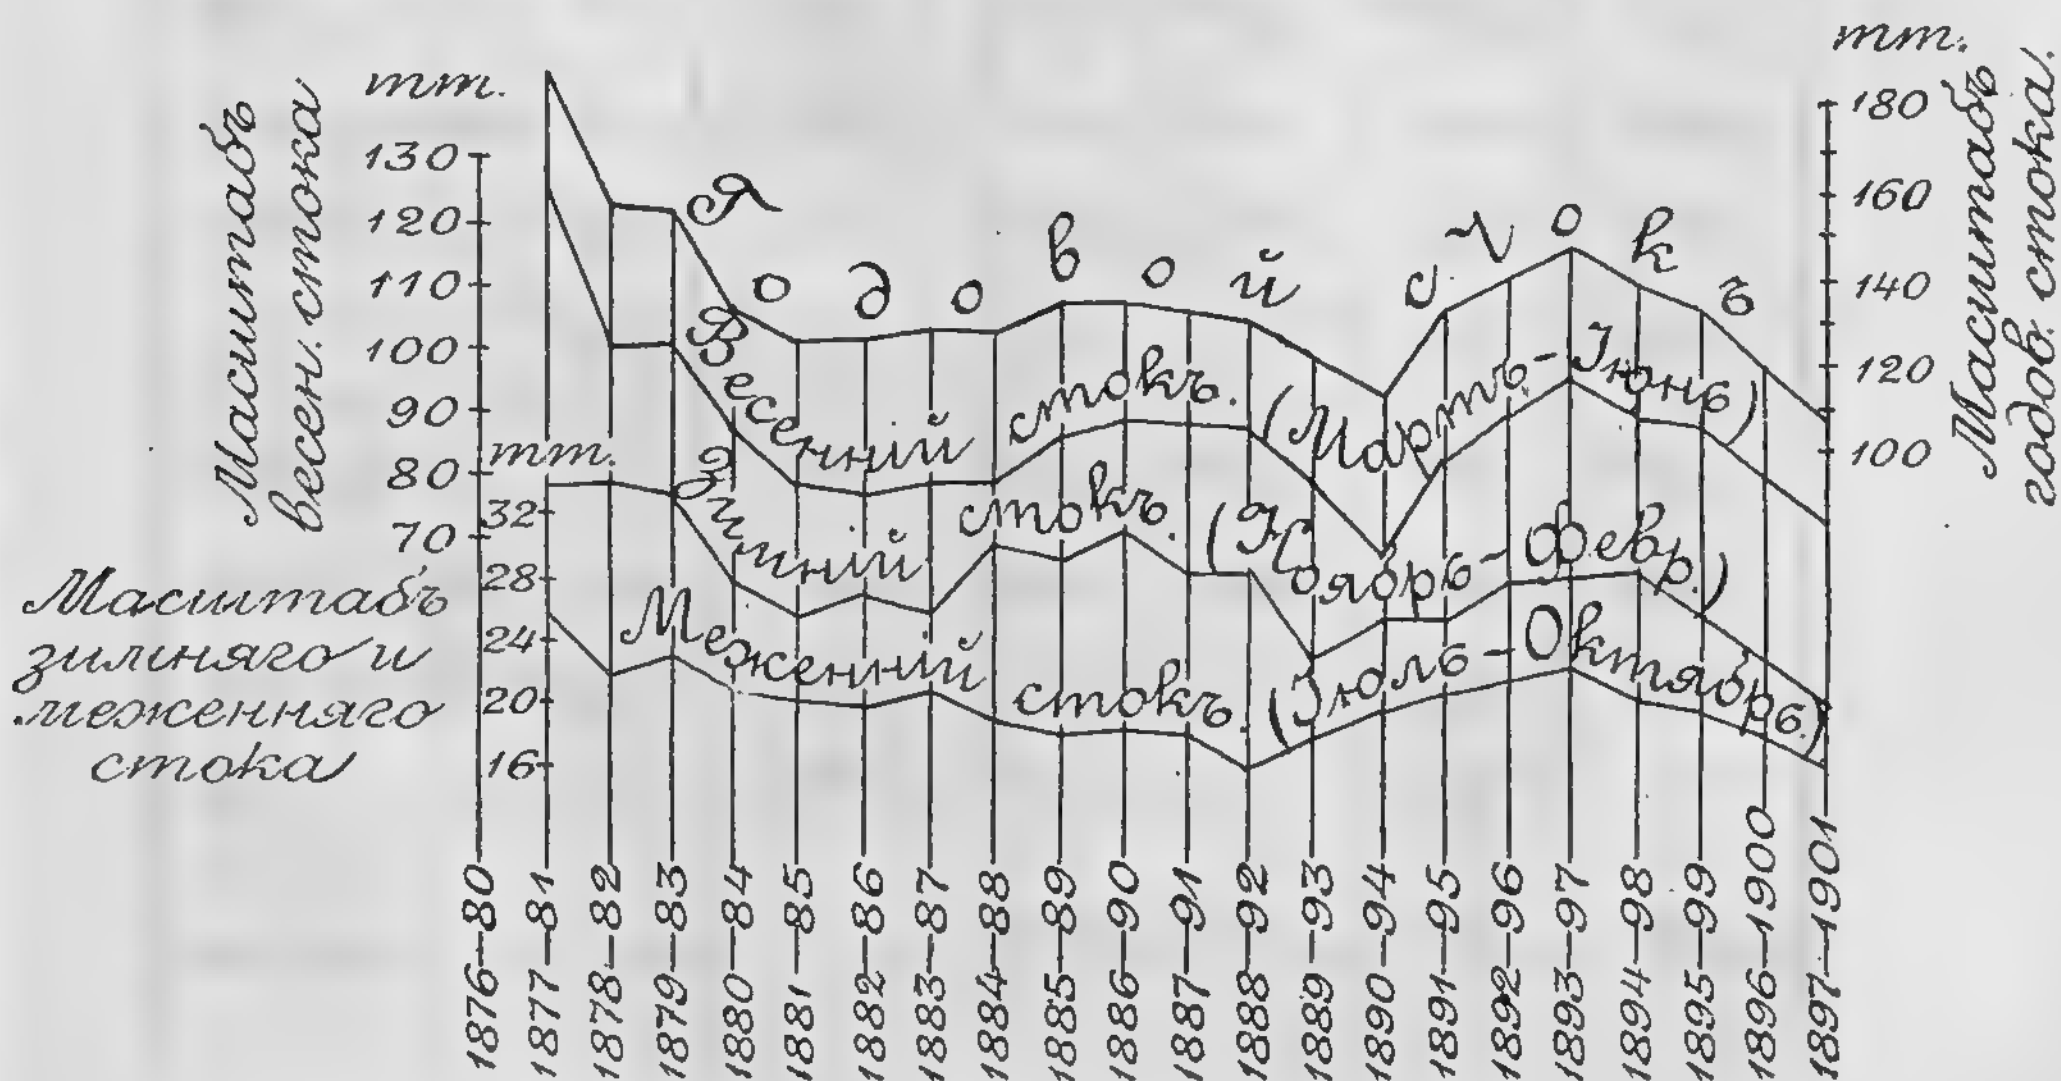 mm.
Масштабъ
весен. стока
130
120
110
100
90
80
70
mm.
32
28
24
20
16
Масштабъ
зимняго и
меженняго
стока
Годовой стокъ
Весенний стокъ. (Мартъ-Iюнь)
Зимний стокъ. (Ноябрь-Февр.)
Меженний стокъ (Iюль-Октябрь.)
mm.
180
160
140
120
100
Масштабъ
годов. стока.
1876-80
1877-81
1878-82
1879-83
1880-84
1881-85
1882-86
1883-87
1884-88
1885-89
1886-90
1887-91
1888-92
1889-93
1890-94
1891-95
1892-96
1893-97
1894-98
1895-99
1896-1900
1897-1901